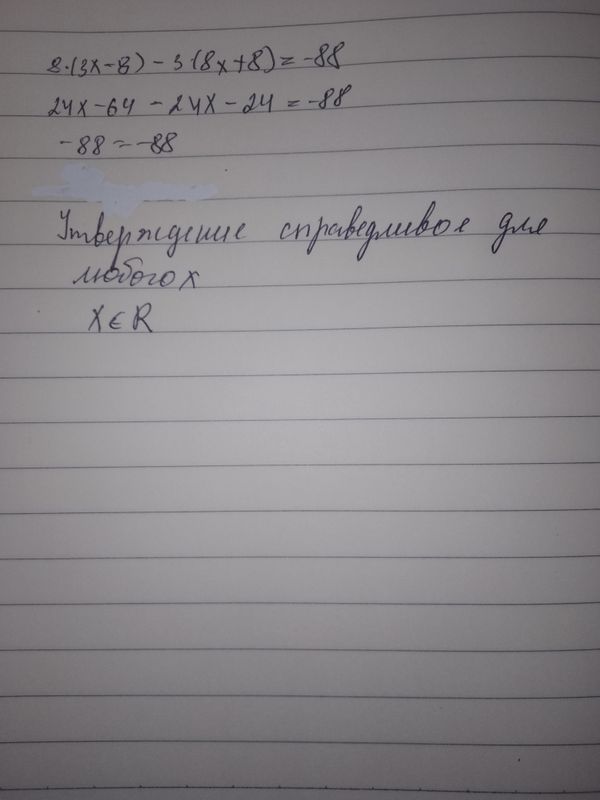 8·(3x-8) - 3·(8x+8) = -88
24x-64 - 24x - 24 = -88
-88 = -88
Утверждение справедливое для
любого x
x∈R